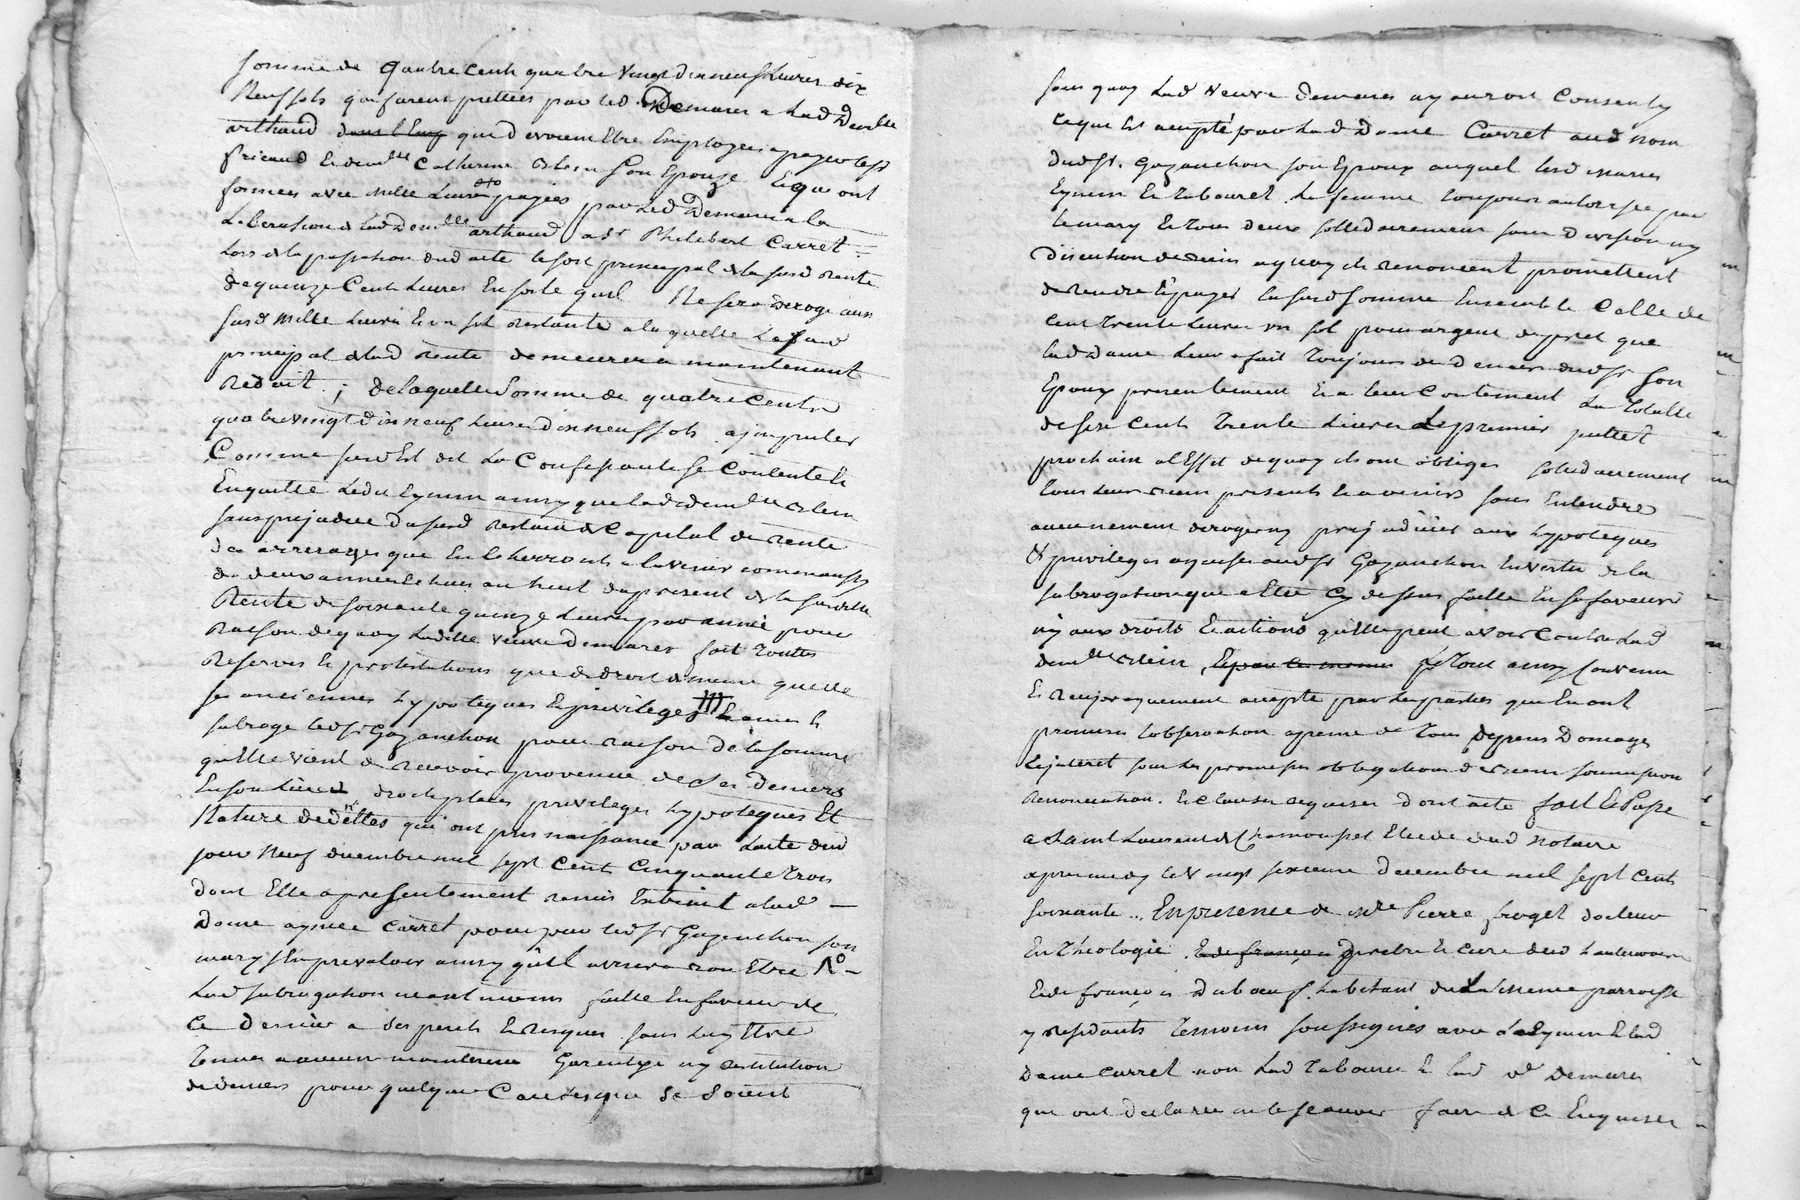 somme de quatre cents quatre vingt dix neuf livres dix
neuf sols qui furent prettées par led Demares a lad Demlle
arthaud dans l'emp qui devoient Etre Employées a payer led sr
fricaud Et demlle Catherine Son Epouze Et qui ont
formées avec mille Livres payées par led Demares la
Liberation de lad Demlle arthaud a sr Philibert Carret
Lors de la passation dud acte le sort principal de la susd rente
de quinze Cents Livres En sorte quil Ne sera deroge aux
susd mille Livres Et un sol Restante a laquelle Lasusd
principal de lad rente demeurera maintenant
Reduit ; de laquelle Somme de quatre Cents
quatre vingt dix neuf Livres dix neuf sols a imputer
Comme susd Est dit La Confessante se Contente Et
En quitte Led Eymin ainsy que lad demlle
sans prejudice du susd Restant de Capital de rente
des arrerages que En le herront a lavenir commansés
de deux années Echues au huit du present de la susditte
Rente de soixante quinze Livres par année pour
Raison de quoy Laditte veuve Demares fait Touttes
Reserves Et protestations que de droit demeure quelle
ses anciennes hypoteques Et privileges Et a mis Et
subroge led sr Gazanchon pour raison de la somme
quelle vient de recevoir provenue de Ses deniers
En son Lieu droit place privileges hypoteques Et
Nature de dettes qui ont pris naissance par Lacte dud
jour Neuf decembre mil sept Cents Cinquante Trois
dont Elle a presentement remis Extrait a lad
Dame aymée Carret pour par led sr Gazanchon son
mary s'En prevaloir ainsy qu'il avisera bon Etre No
Lad subrogation neantmoins faitte En faveur de
Ce Dernier a Ses perils Et risques sans luy Etre
Tenue a aucune maintenue Garentye ny restitution
de deniers pour quelque Cause que Se Soient
sans quoy Lad Veuve Demares ny auroit Consenty
Ce que Est accepté par Lad Dame Carret aud nom
dud sr. Gazanchon son Epoux auquel Led maries
Eymin Et Tabouret La femme toujours autorisée par
le mary Et Tous deux sollidairement sans Division ny
Discution de biens a quoy ils renoncent promettent
de rendre Et payer la susd somme Ensemble Celle de
Cent trente Livres un sol pour argent de pret que
lad Dame Leur a fait Toujours de deniers dud sr son
Epoux presentement Et a leur Contement La Totalle
de six Cents Trente Livres Le premier juillet
prochain a l'Effet de quoy ils ont obligés sollidairement
tous leurs biens presents Et a venirs sans Entendre
aucunement deroger ny prejudicier aux hypoteques
Et privileges aquises aud sr Gazanchon En vertu de la
subrogation que a Eté Cy dessus faitte En sa faveur
ny aux droits Et actions qu'Elle peut avoir Contre Lad
demlle Et par les memes Le Tout ainsy Convenu
Et reciproquement accepté par les parties qui En ont
promises l'observation a peine de Tous depens Domages
Et interet sous les promesses obligations de biens soumission
Renonciation. Et Clauses requises dont acte fait Et Passé
a Saint Laurent de Chamousset Etude dud notaire
apres midy le Vingt sixieme Decembre mil sept Cents
soixante .. En presence de Mre Pierre froget docteur
En Theologie Et de françois Prestre Et curé dud
Et de françois Duboeuf habitant du La meme parroisse
y residants Temoins soussignés avec led Eymin Et lad
Dame Carret non Lad Tabouret Et lad ve Demares
qui ont declarées ne le scavoir faire de Ce Enquises